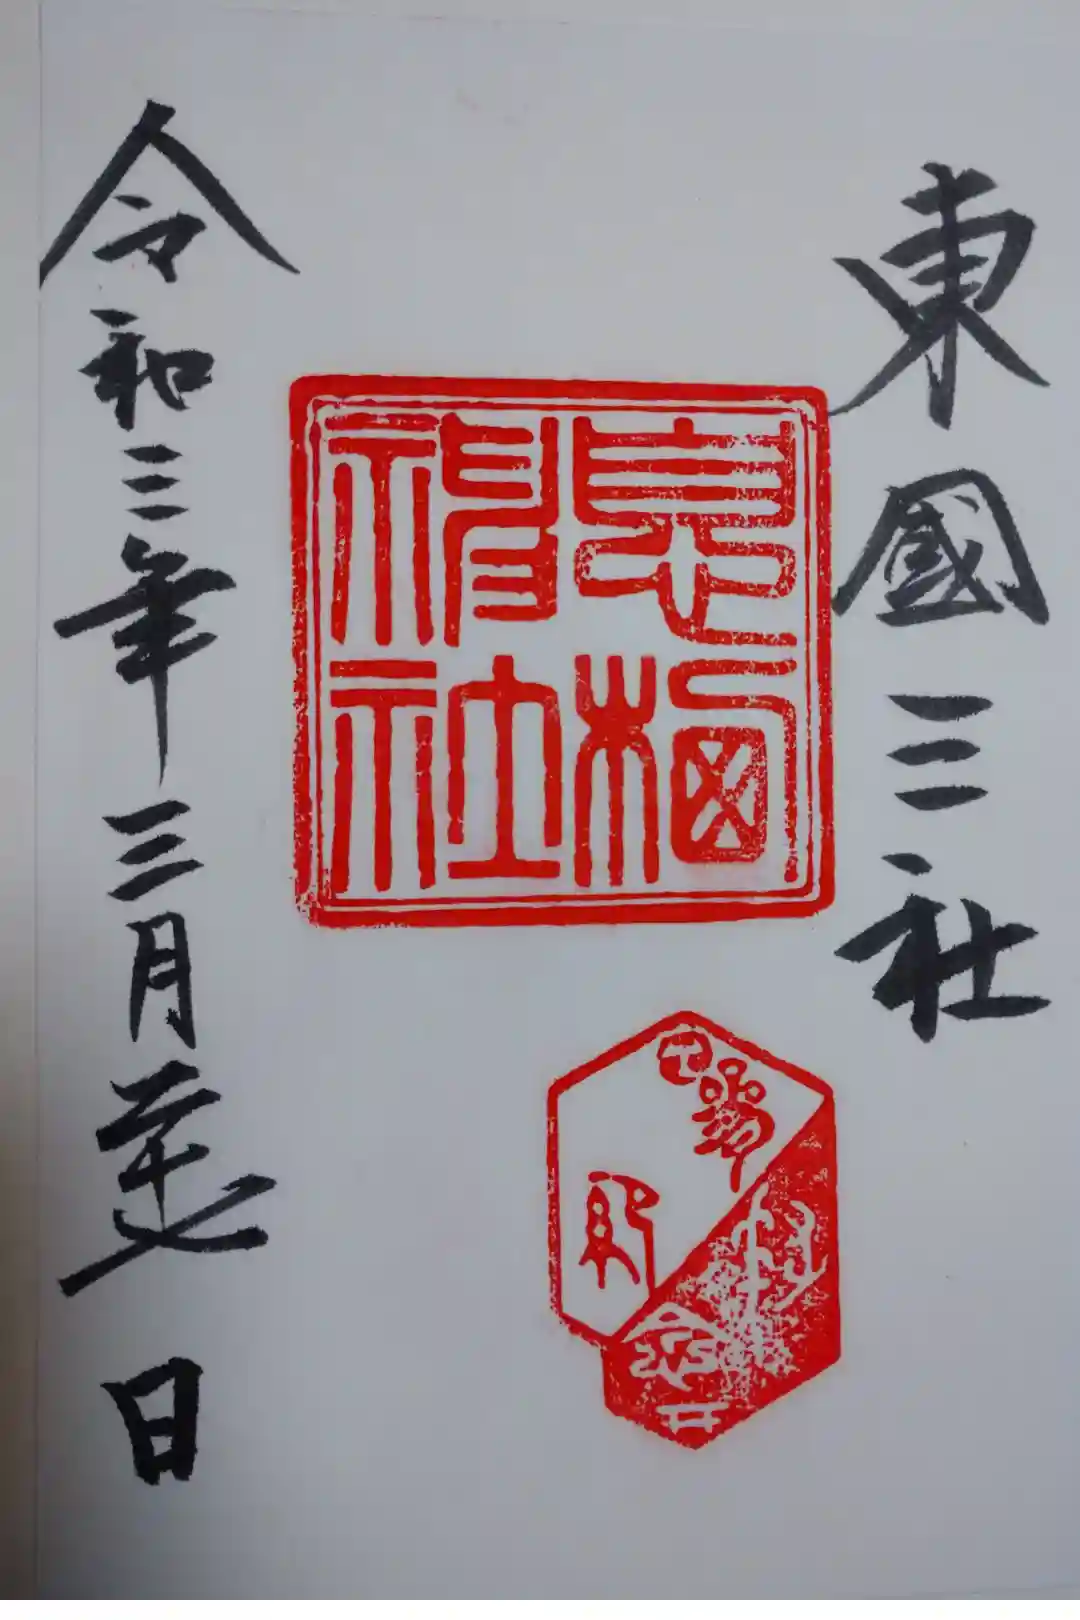 東國三社
息栖神社
令和三年三月二十七日